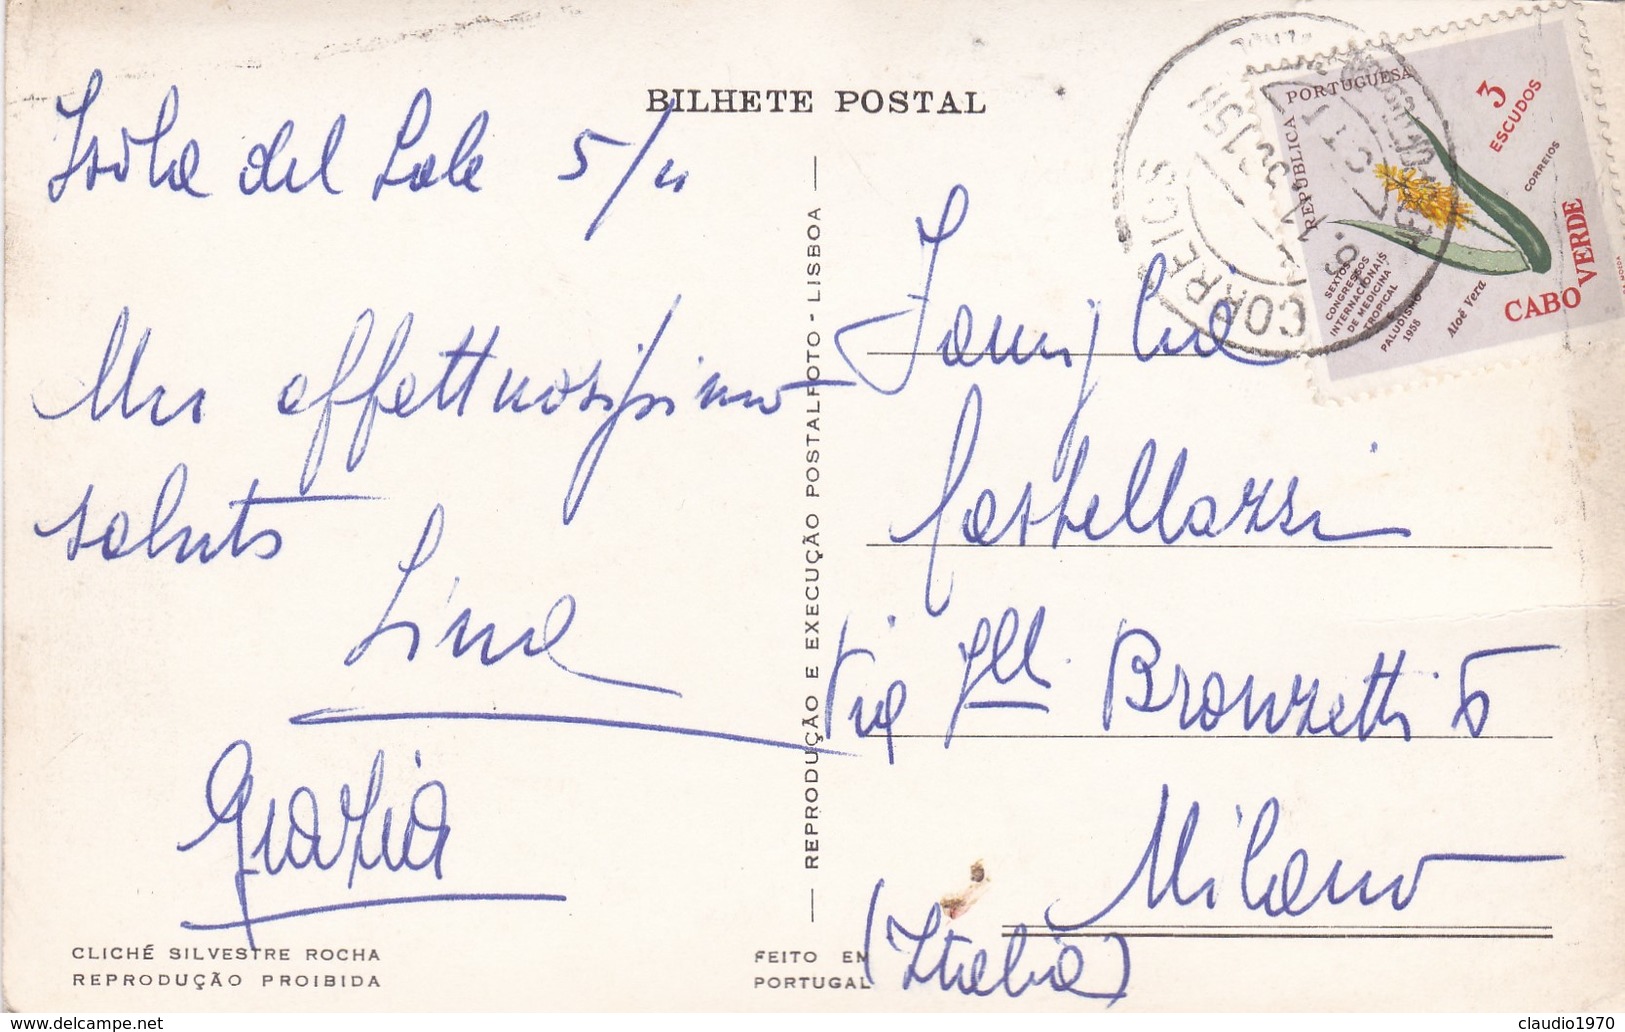 BILHETE POSTAL
Isola del Sale 5/11
Un affettuosissimo
saluto
Lina
Grazia
CLICHÉ SILVESTRE ROCHA
REPRODUÇÃO PROIBIDA
REPRODUÇÃO E EXECUÇÃO POSTALFOTO - LISBOA
FEITO EM
PORTUGAL
Famiglia
Castellazzi
Via Flli Bronzetti 5
Milano
(Italia)
CORREIOS
REPÚBLICA PORTUGUESA
3
ESCUDOS
CORREIOS
CABO VERDE
Aloë Vera
SEXTOS
CONGRESSOS
INTERNACIONAIS
DE MEDICINA
TROPICAL
E
PALUDISMO
1958
delcampe.net
claudio1970